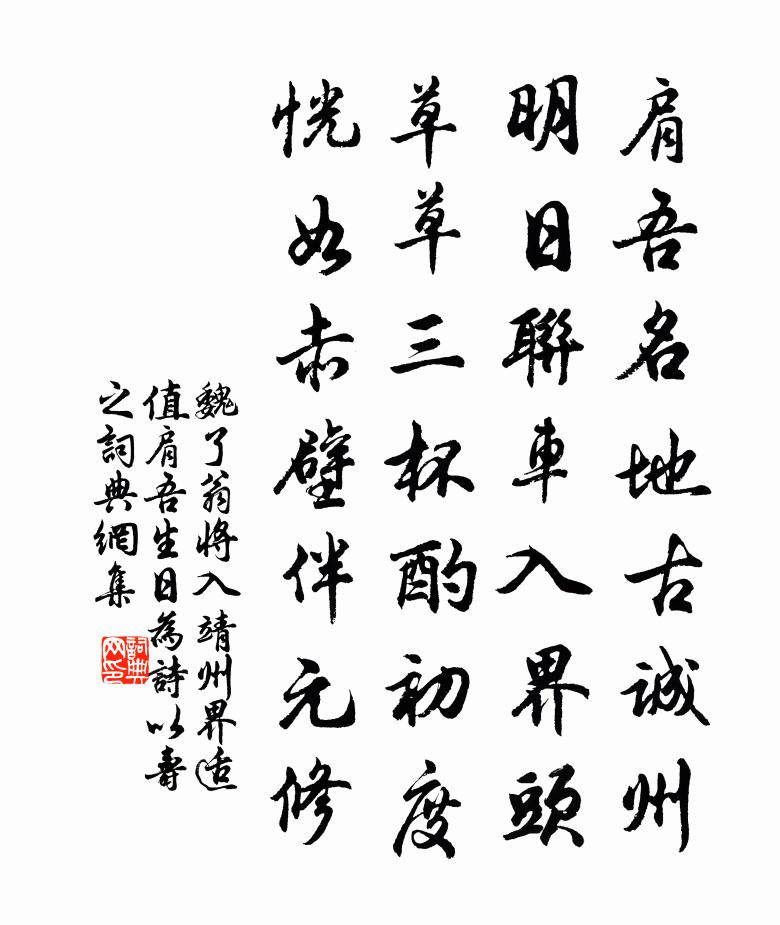 肩吾名地古誠州
明日聯車入界頭
草草三杯酌初度
恍如赤壁伴元修
魏了翁將入靖州界適
值肩吾生日為詩以壽
之詞典網集
詞典
网印